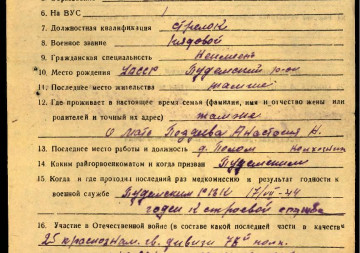 6. На ВУС 1
7. Должностная квалификация стрелок
8. Военное звание рядовой
9. Гражданская специальность
10. Место рождения УАССР Пудемский р-он
11. Последнее место жительства там же
12. Где проживает в настоящее время семья (фамилия, имя и отчество жены или
родителей и точный их адрес) там же
Поздеева Анастасия Н.
13. Последнее место работы и должность д. колхозник
14. Каким райгорвоенкоматом и когда призван Пудемским
15. Когда и где проходил последний раз медкомиссию и результат годности к
военной службе Пудемским РВК 17/VII-44
годен к строевой службе
16. Участие в Отечественной войне (в составе какой последней части в качестве
25 краснознам. гв. дивизи 78й полк.